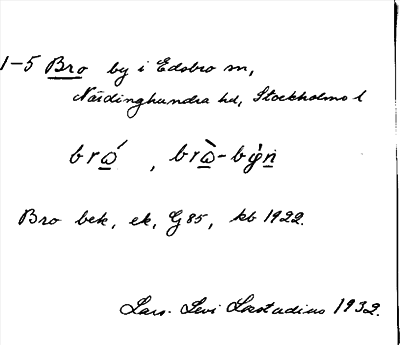 1-5 Bro by i Edsbro sn,
Närdinghundra hd, Stockholms l
brώ, brὼ-bẏn
Bro bek, ek, G 85, kb 1922.
Lars Levi Læstadius 1932.